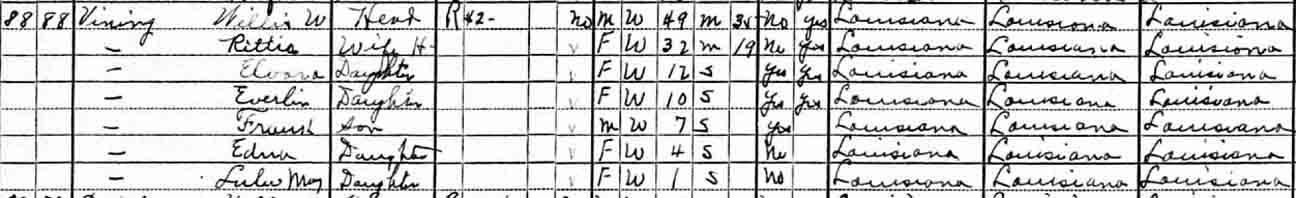 88 88 Vining Willis W Head R 42- No M W 49 M 30 No Yes Louisiana Louisiana Louisiana
— Rittia Wife H- v F W 32 M 19 No Yes Louisiana Louisiana Louisiana
— Elvara Daughter v F W 12 S Yes Yes Louisiana Louisiana Louisiana
— Everlin Daughter v F W 10 S Yes Yes Louisiana Louisiana Louisiana
— Son v M W 7 S Yes Louisiana Louisiana Louisiana
— Edna Daughter v F W 4 S No Louisiana Louisiana Louisiana
— Lulu May Daughter v F W 1 S No Louisiana Louisiana Louisiana